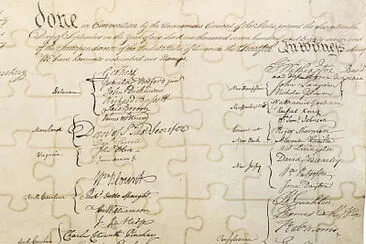 done in Convention by the Unanimous Consent of the States present the Seventeenth
Day of September in the Year of our Lord one thousand seven hundred and Eighty seven and
of the Independance of the United States of America the Twelfth In Witness
We have hereunto subscribed our Names,
Delaware
Geo: Read
Gunning Bedford jun
John Dickinson
Richard Bassett
Jaco: Broom
Maryland
James McHenry
Dan of St Thos Jenifer
Danl Carroll
Virginia
John Blair
James Madison Jr
North Carolina
Wm Blount
Richd Dobbs Spaight
Hu Williamson
J. Rutledge
Charles Cotesworth Pinckney
Go Washington Presidt
and deputy from Virginia
New Hampshire
John Langdon
Nicholas Gilman
Massachusetts
Nathaniel Gorham
Rufus King
Connecticut
Wm Saml Johnson
Roger Sherman
New York
Alexander Hamilton
New Jersey
Wil: Livingston
David Brearley
Wm Paterson
Jona: Dayton
B Franklin
Thomas Mifflin
Robt Morris
Pensylvania